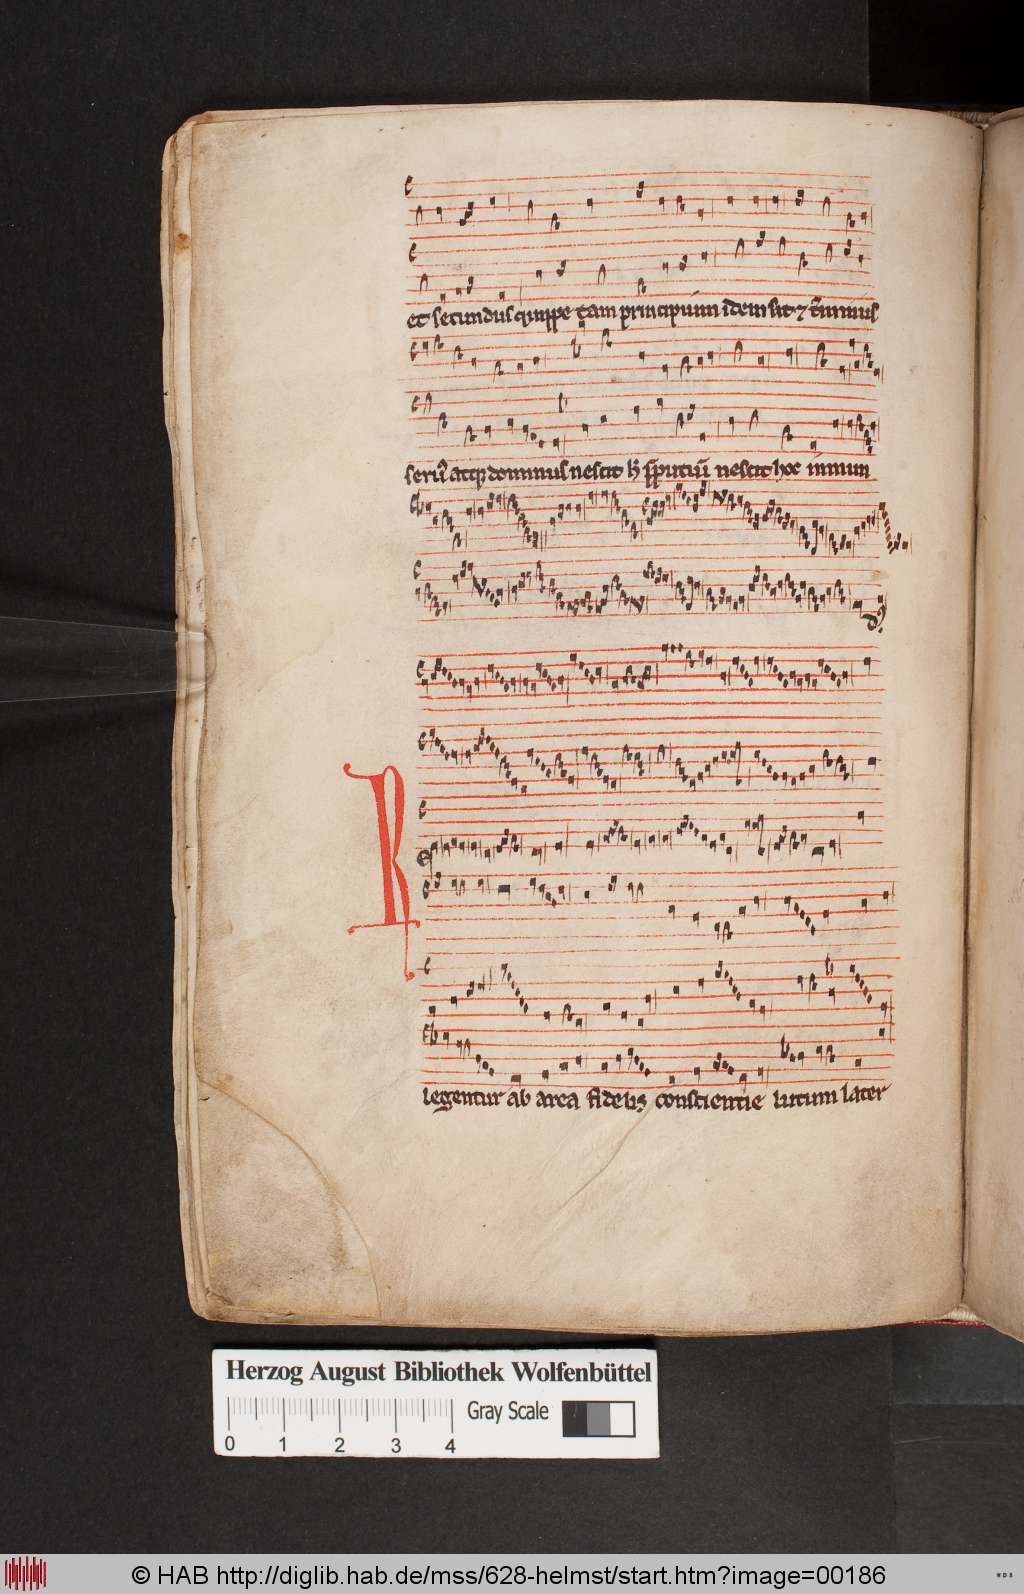 et secundus quippe tam principium idem sit ⁊ t̄minus
seru̅ atq dominus nescit h̅ sp̅iritiū nescit hoc inmun
d9
R
e
legentur ab area fidelis conscientie lutum later
Herzog August Bibliothek Wolfenbüttel
Gray Scale
0 1 2 3 4
© HAB http://diglib.hab.de/mss/628-helmst/start.htm?image=00186